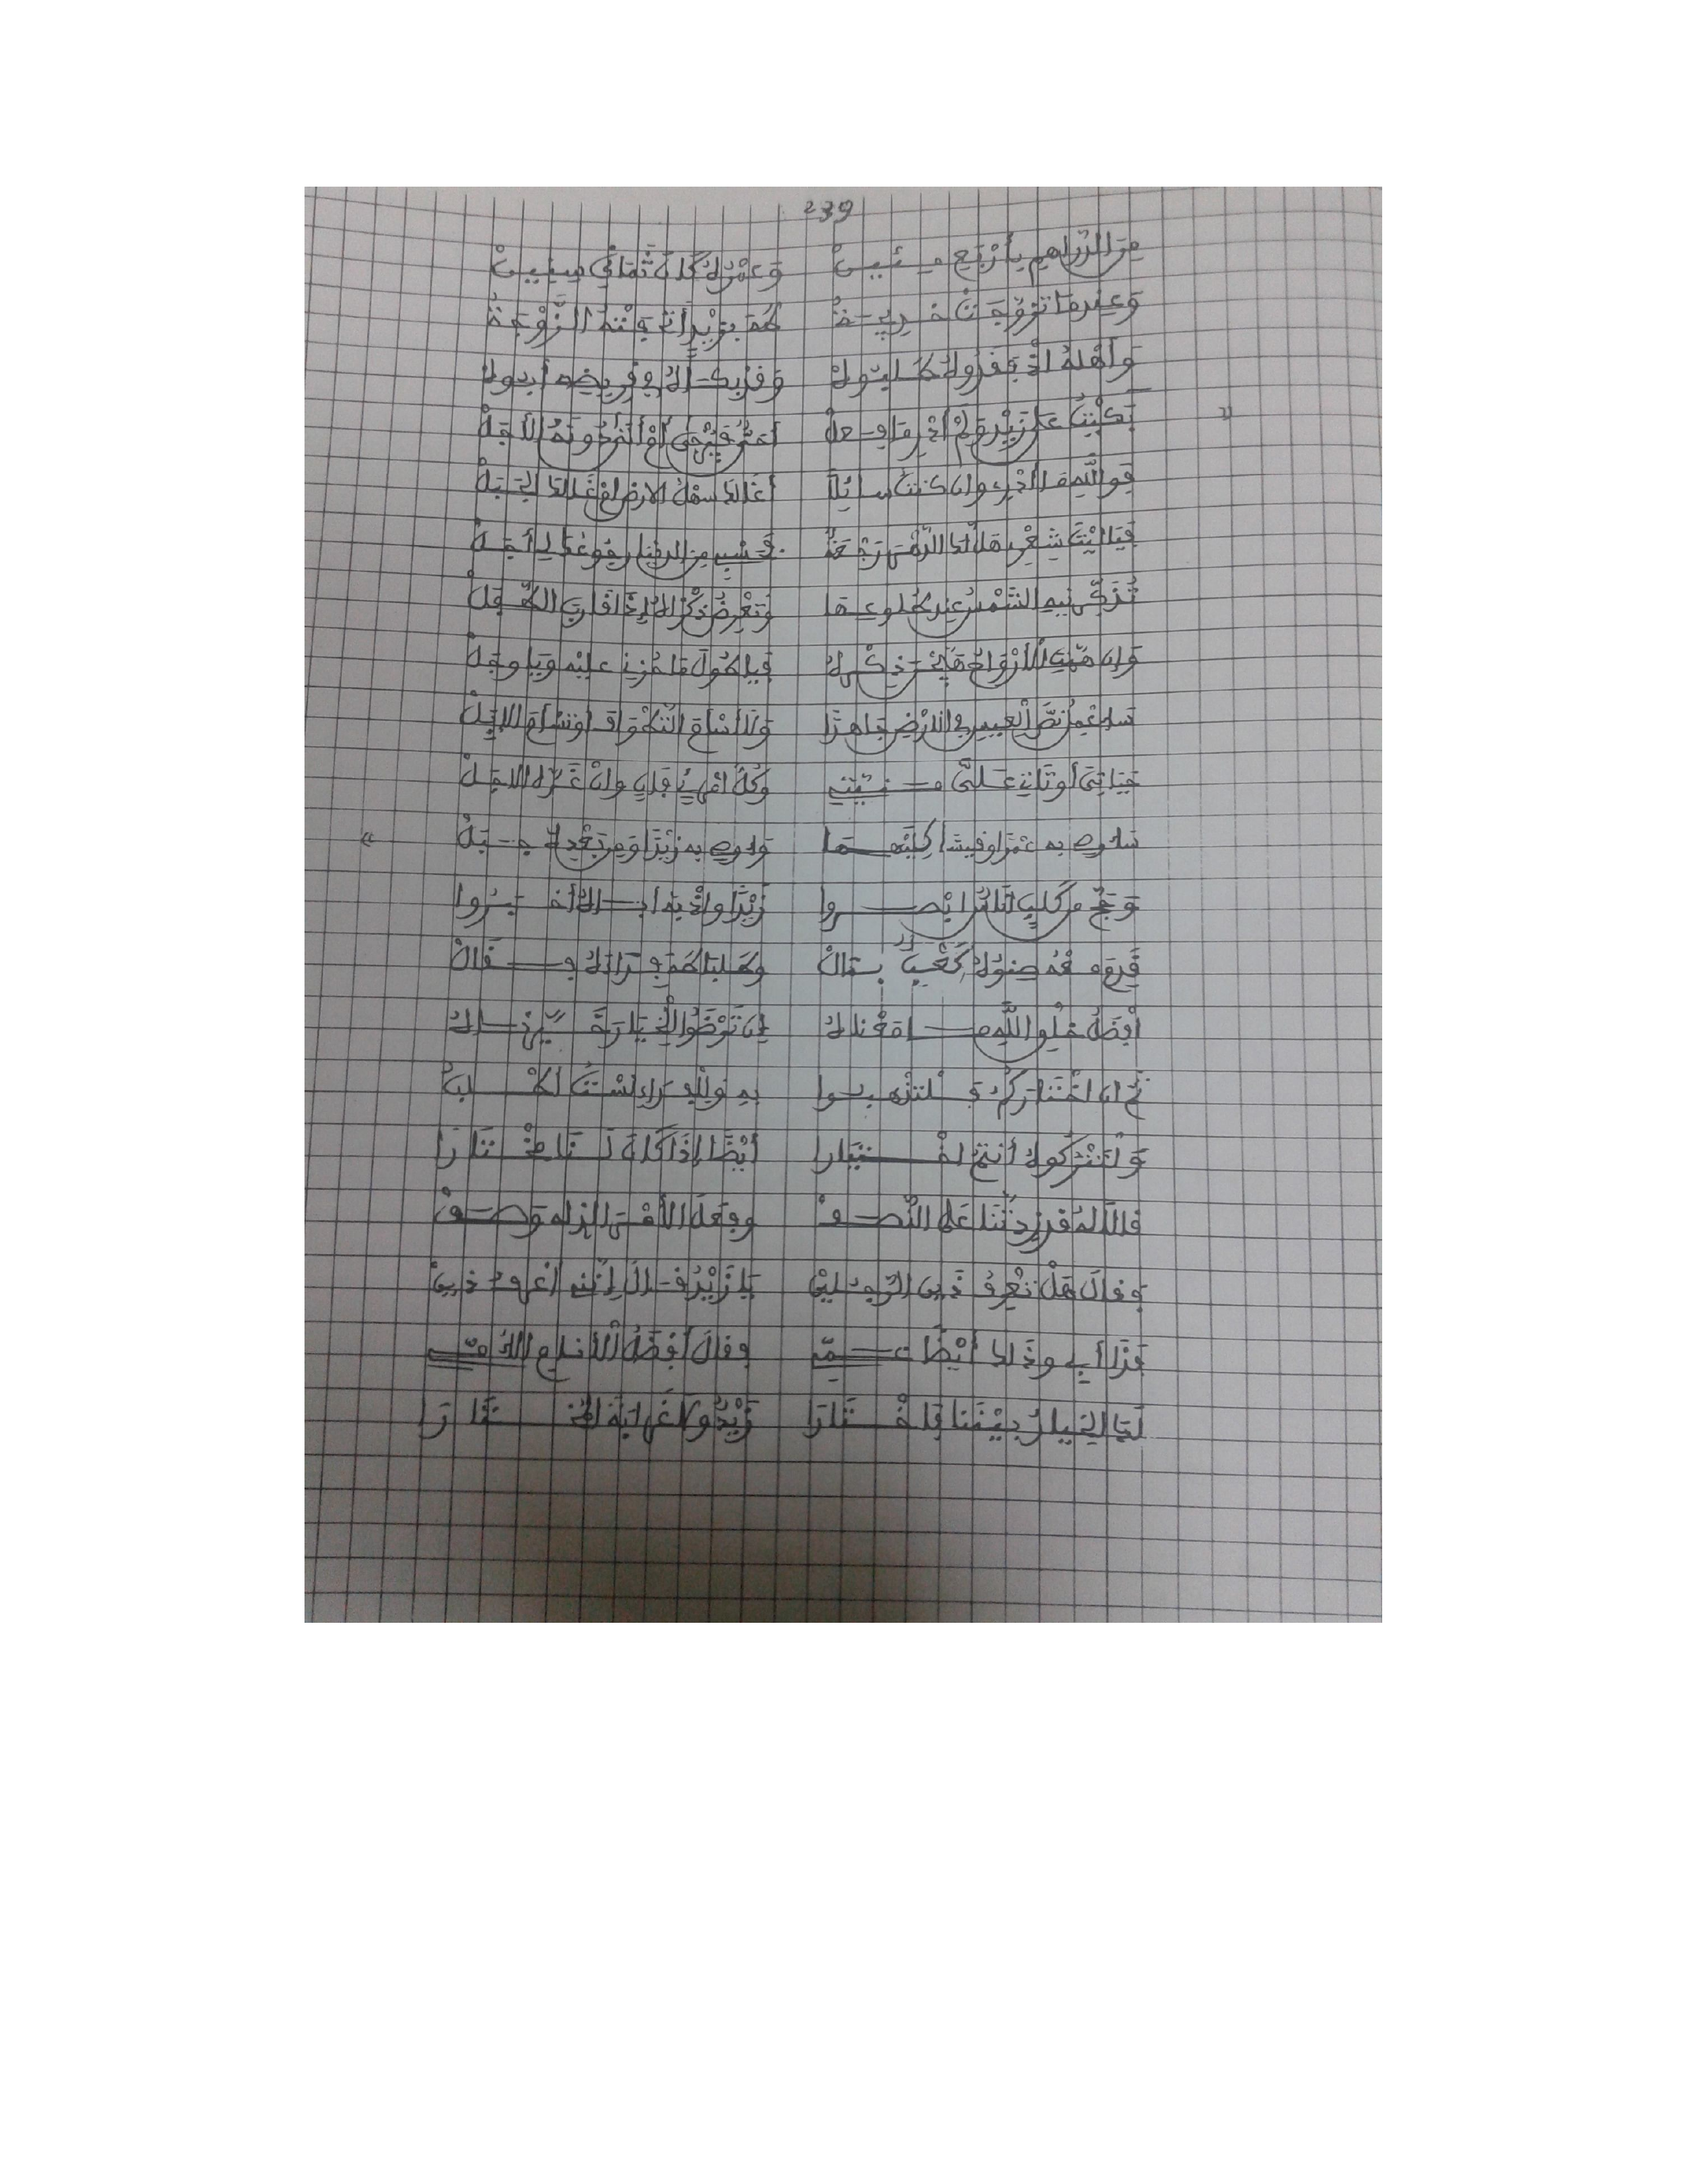 239
من الدراهم بأربع مئين وعمره كان ثماني سنين
وعندما تزوجت خديجة هم بزيد أتحفته الزوجة
وأهله إذ فقدوه طلبوه وقد بكى له في قريضه أبوه
» بكيت على زيد ولم أدر ما فعل أحي فيرجى أم أتى دونه الأجل
فوالله ما أدري وإن كنت سائلا أغالك سهل الأرض أم غالك الجبل
فيا ليت شعري هل لك الدهر رجعة فحسبي من الدنيا رجوعك لي أجل
تذكرنيه الشمس عند طلوعها وتعرض ذكراه إذا قارب الطفل
وإن هبت الأرواح هيجن ذكره فيا طول ما حزني عليه ويا وجل
سأعمل نص العيس في الأرض جاهدا ولا أسأم التطواف أو تسأم الإبل
حياتي أو تأتي علي منيتي وكل امرئ فان وإن غره الأمل
سأوصي به عمرا وقيسا كليهما وأوصي به زيدا ومن بعده جبل «
وحج من كلب أناس أبصروا زيدا وإذ به أباه أخبروا
فجاءه صنوه كعب بمال وطلبا طه فداءه فقال
أفضل خلق الله صلى معناه إن ترضوا الخيار خيرناه
ثم إن اختاركم فلتذهبوا به وللفداء لست أطلب
ولتتركوه أنتم اختيارا أيضا إذا كان لنا اختارا
قالا له قد زدتنا على النصف وجعل الأمر الذي له وصف
وقال هل تعرف ذين الرجلين يا زيد قال إنني أعرف ذين
هذا أبي وذاك أيضا عمي وقال أفضل الأنام الأمي
لك الخيار بيننا فاختارا زيد وكان غرابة اختارا